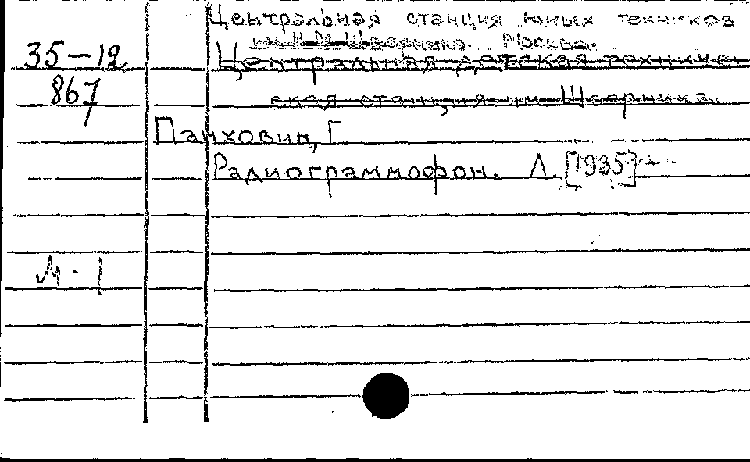 Центральная станция юных техников
им. Н. М. Шверника. Москва.
35-12
Центральная детская техниче-
867
ская станция им Шверника.
Панховин, Г
Радиограммофон. Л. [1935]
М-1